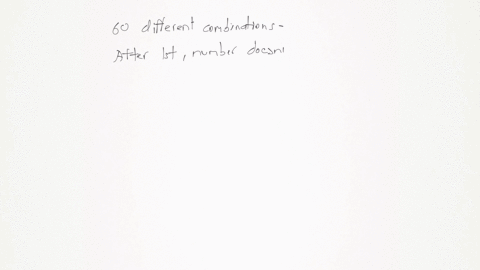 60 different combinations-
After 1st, number doesn